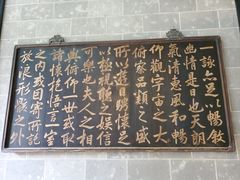 一詠亦足以暢敘
幽情是日也天朗
氣清惠風和暢
仰觀宇宙之大
俯察品類之盛
所以遊目騁懷足
以極視聽之娛信
可樂也夫人之相
與俯仰一世或取
諸懷抱悟言一室
之內或因寄所託
放浪形骸之外